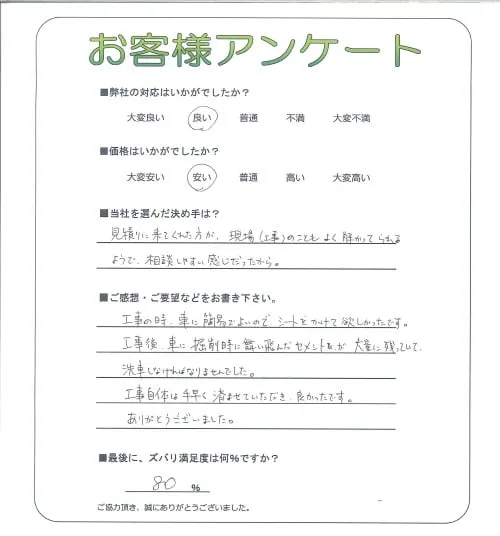 お客様アンケート
■弊社の対応はいかがでしたか？
大変良い 良い 普通 不満 大変不満
■価格はいかがでしたか？
大変安い 安い 普通 高い 大変高い
■当社を選んだ決め手は？
見積りに来てくれた方が、現場(工事)のこともよく解かってられる
ようで、相談しやすい感じだったから。
■ご感想・ご要望などをお書き下さい。
工事の時、車に簡易でよいので シートをかけて欲しかったです。
工事後、車に 掘削時に舞い飛んだセメントが 大量に残っていて、
洗車しなければなりませんでした。
工事自体は手早く 済ませていただき、良かったです。
ありがとうございました。
■最後に、ズバリ満足度は何％ですか？
80 ％
ご協力頂き、誠にありがとうございました。